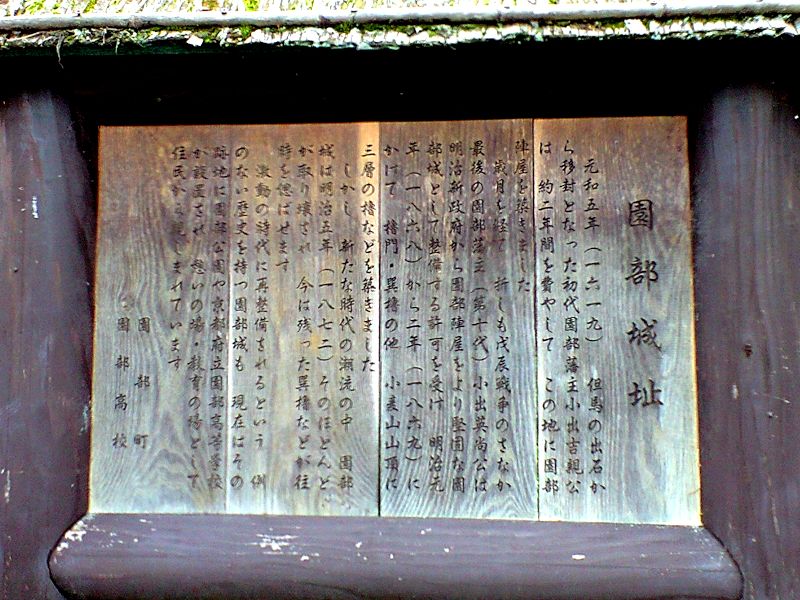 園部城址
元和五年（一六一九） 但馬の出石か
ら移封となった初代園部藩主小出吉親公
は 約二年間を費やして この地に園部
陣屋を築きました
歳月を経て 折しも戊辰戦争のさなか
最後の園部藩主（第十代）小出英尚公は
明治新政府から園部陣屋をより堅固な園
部城として整備する許可を受け 明治元
年（一八六八）から二年（一八六九）に
かけて 櫓門・巽櫓の他 小麦山山頂に
三層の櫓などを築きました
しかし 新たな時代の潮流の中 園部
城は明治五年（一八七二）そのほとんど
が取り壊され 今は残った巽櫓などが往
時を偲ばせます
激動の時代に再整備されるという 例
のない歴史を持つ園部城も 現在はその
跡地に園部公園や京都府立園部高等学校
が設置され 憩いの場・教育の場として
住民から親しまれています
園部町
園部高校